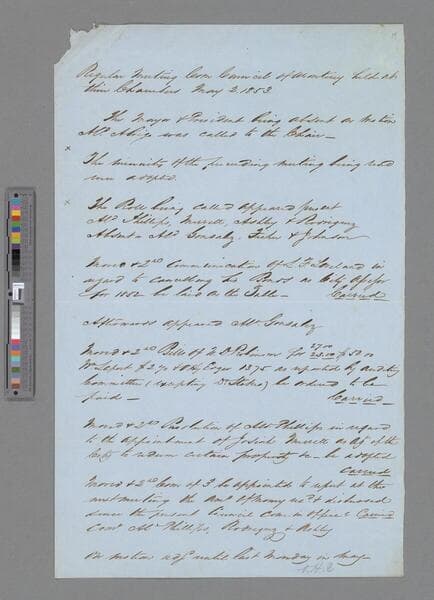 Regular Meeting Com Council of Monterey held at
their Chambers May 2 1853
The Mayor & President being absent on motion
Mr was called to the Chair
The minutes of the preceeding meeting being read
were adopted
The Roll being called appeared present
Mr Phillips, Merritt, Ashley & Rodriguez
Absent Mr Gonzalez, & Johnson
Moved & 2nd Communication of L F Loveland in
regard to cancelling his Bonds as City Assessor
for 1852 be laid on the Table Carried
Afterwards appeared Mr Gonzalez
Moved & 2nd Bills of for
1875 as reported by Auditg
Committee (excepting Dr ) be ordered to be
paid Carried
Moved & 2nd Resolution of Mr Phillips in regard
to the appointment of Josiah Merritt as Agt of the
City to redeem certain property be adopted
Carried
Moved & 2nd Com of 3 be appointed to report at the
next meeting the amt of money recd & disbursed
since the present Council came in office Carried
Comt Mr Phillips, Rodriguez & Ashley
On motion adjd until last Monday in May